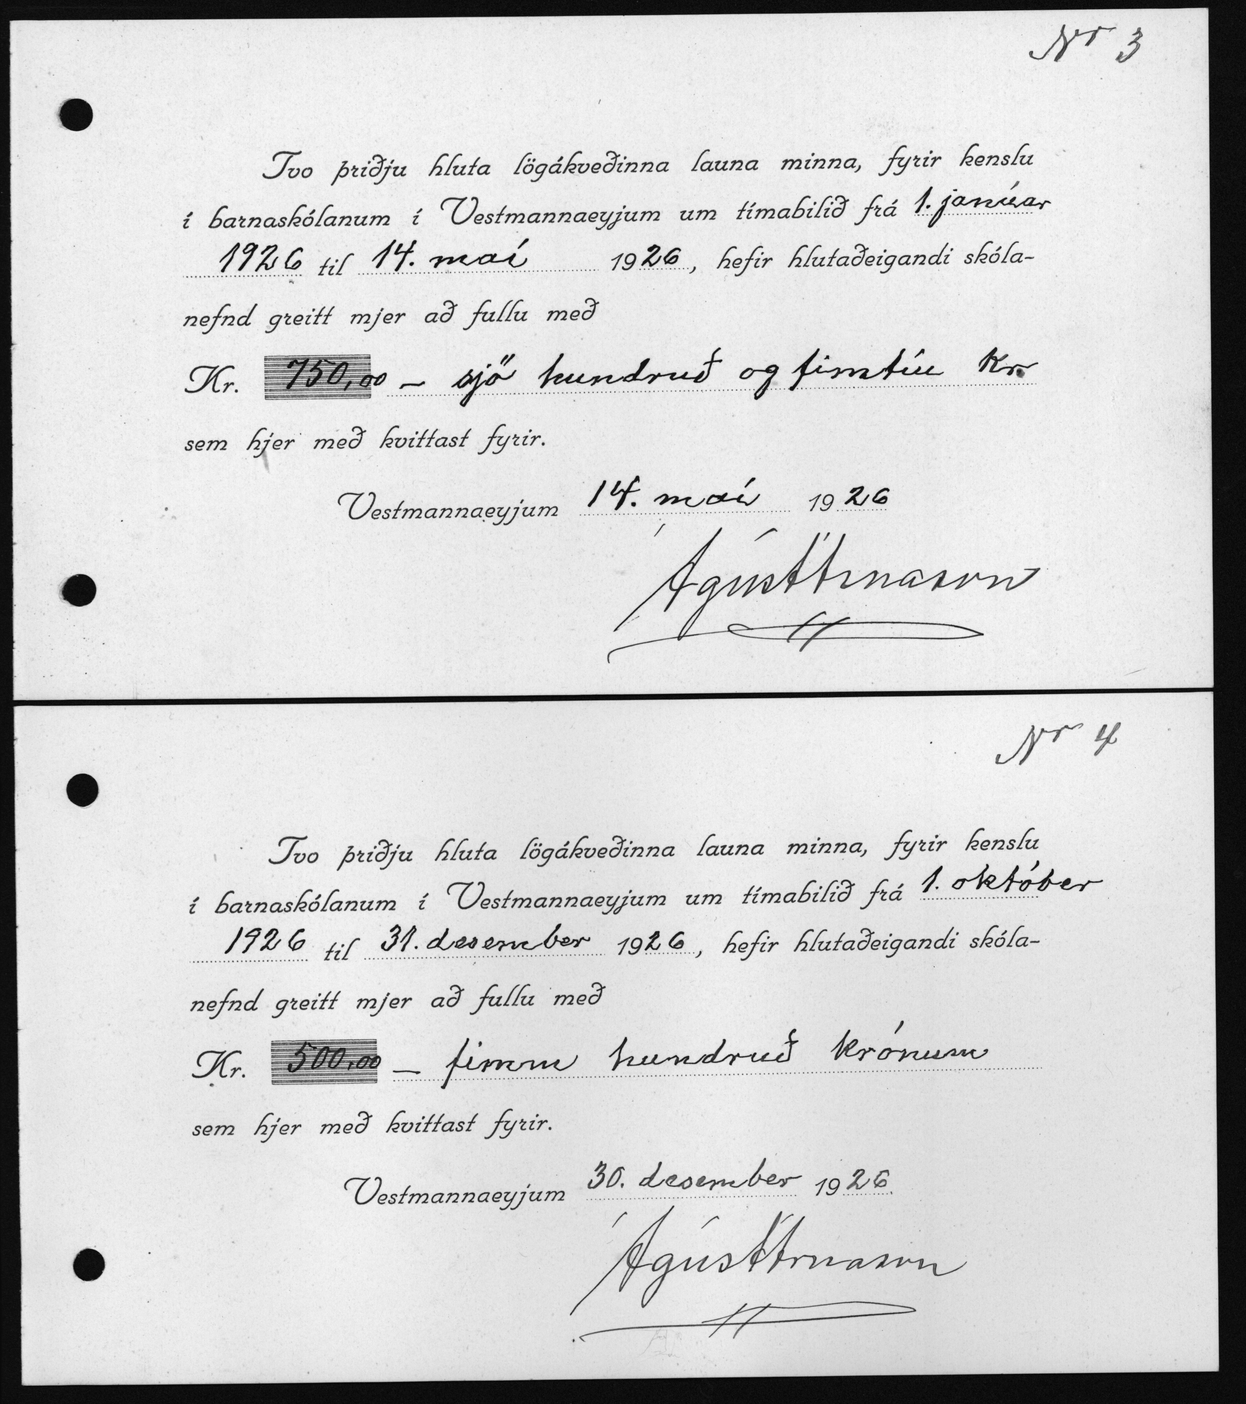 Nr 3
Tvo þriðju hluta lögákveðinna launa minna, fyrir kenslu
í barnaskólanum í Vestmannaeyjum um tímabilið frá 1. janúar
1926 til 14. maí 1926, hefir hlutaðeigandi skóla-
nefnd greitt mjer að fullu með
Kr. 750,00 – sjö hundruð og fimtíu kr.
sem hjer með kvittast fyrir.
Vestmannaeyjum 14. maí 1926
Ágúst Árnason
Nr 4
Tvo þriðju hluta lögákveðinna launa minna, fyrir kenslu
í barnaskólanum í Vestmannaeyjum um tímabilið frá 1. október
1926 til 31. desember 1926, hefir hlutaðeigandi skóla-
nefnd greitt mjer að fullu með
Kr. 500,00 – fimm hundruð krónum
sem hjer með kvittast fyrir.
Vestmannaeyjum 30. desember 1926.
Ágúst Árnason